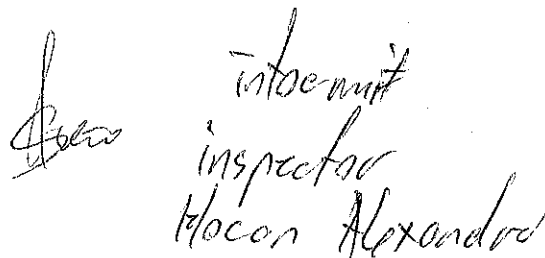 întocmit
inspector
Mocan Alexandra